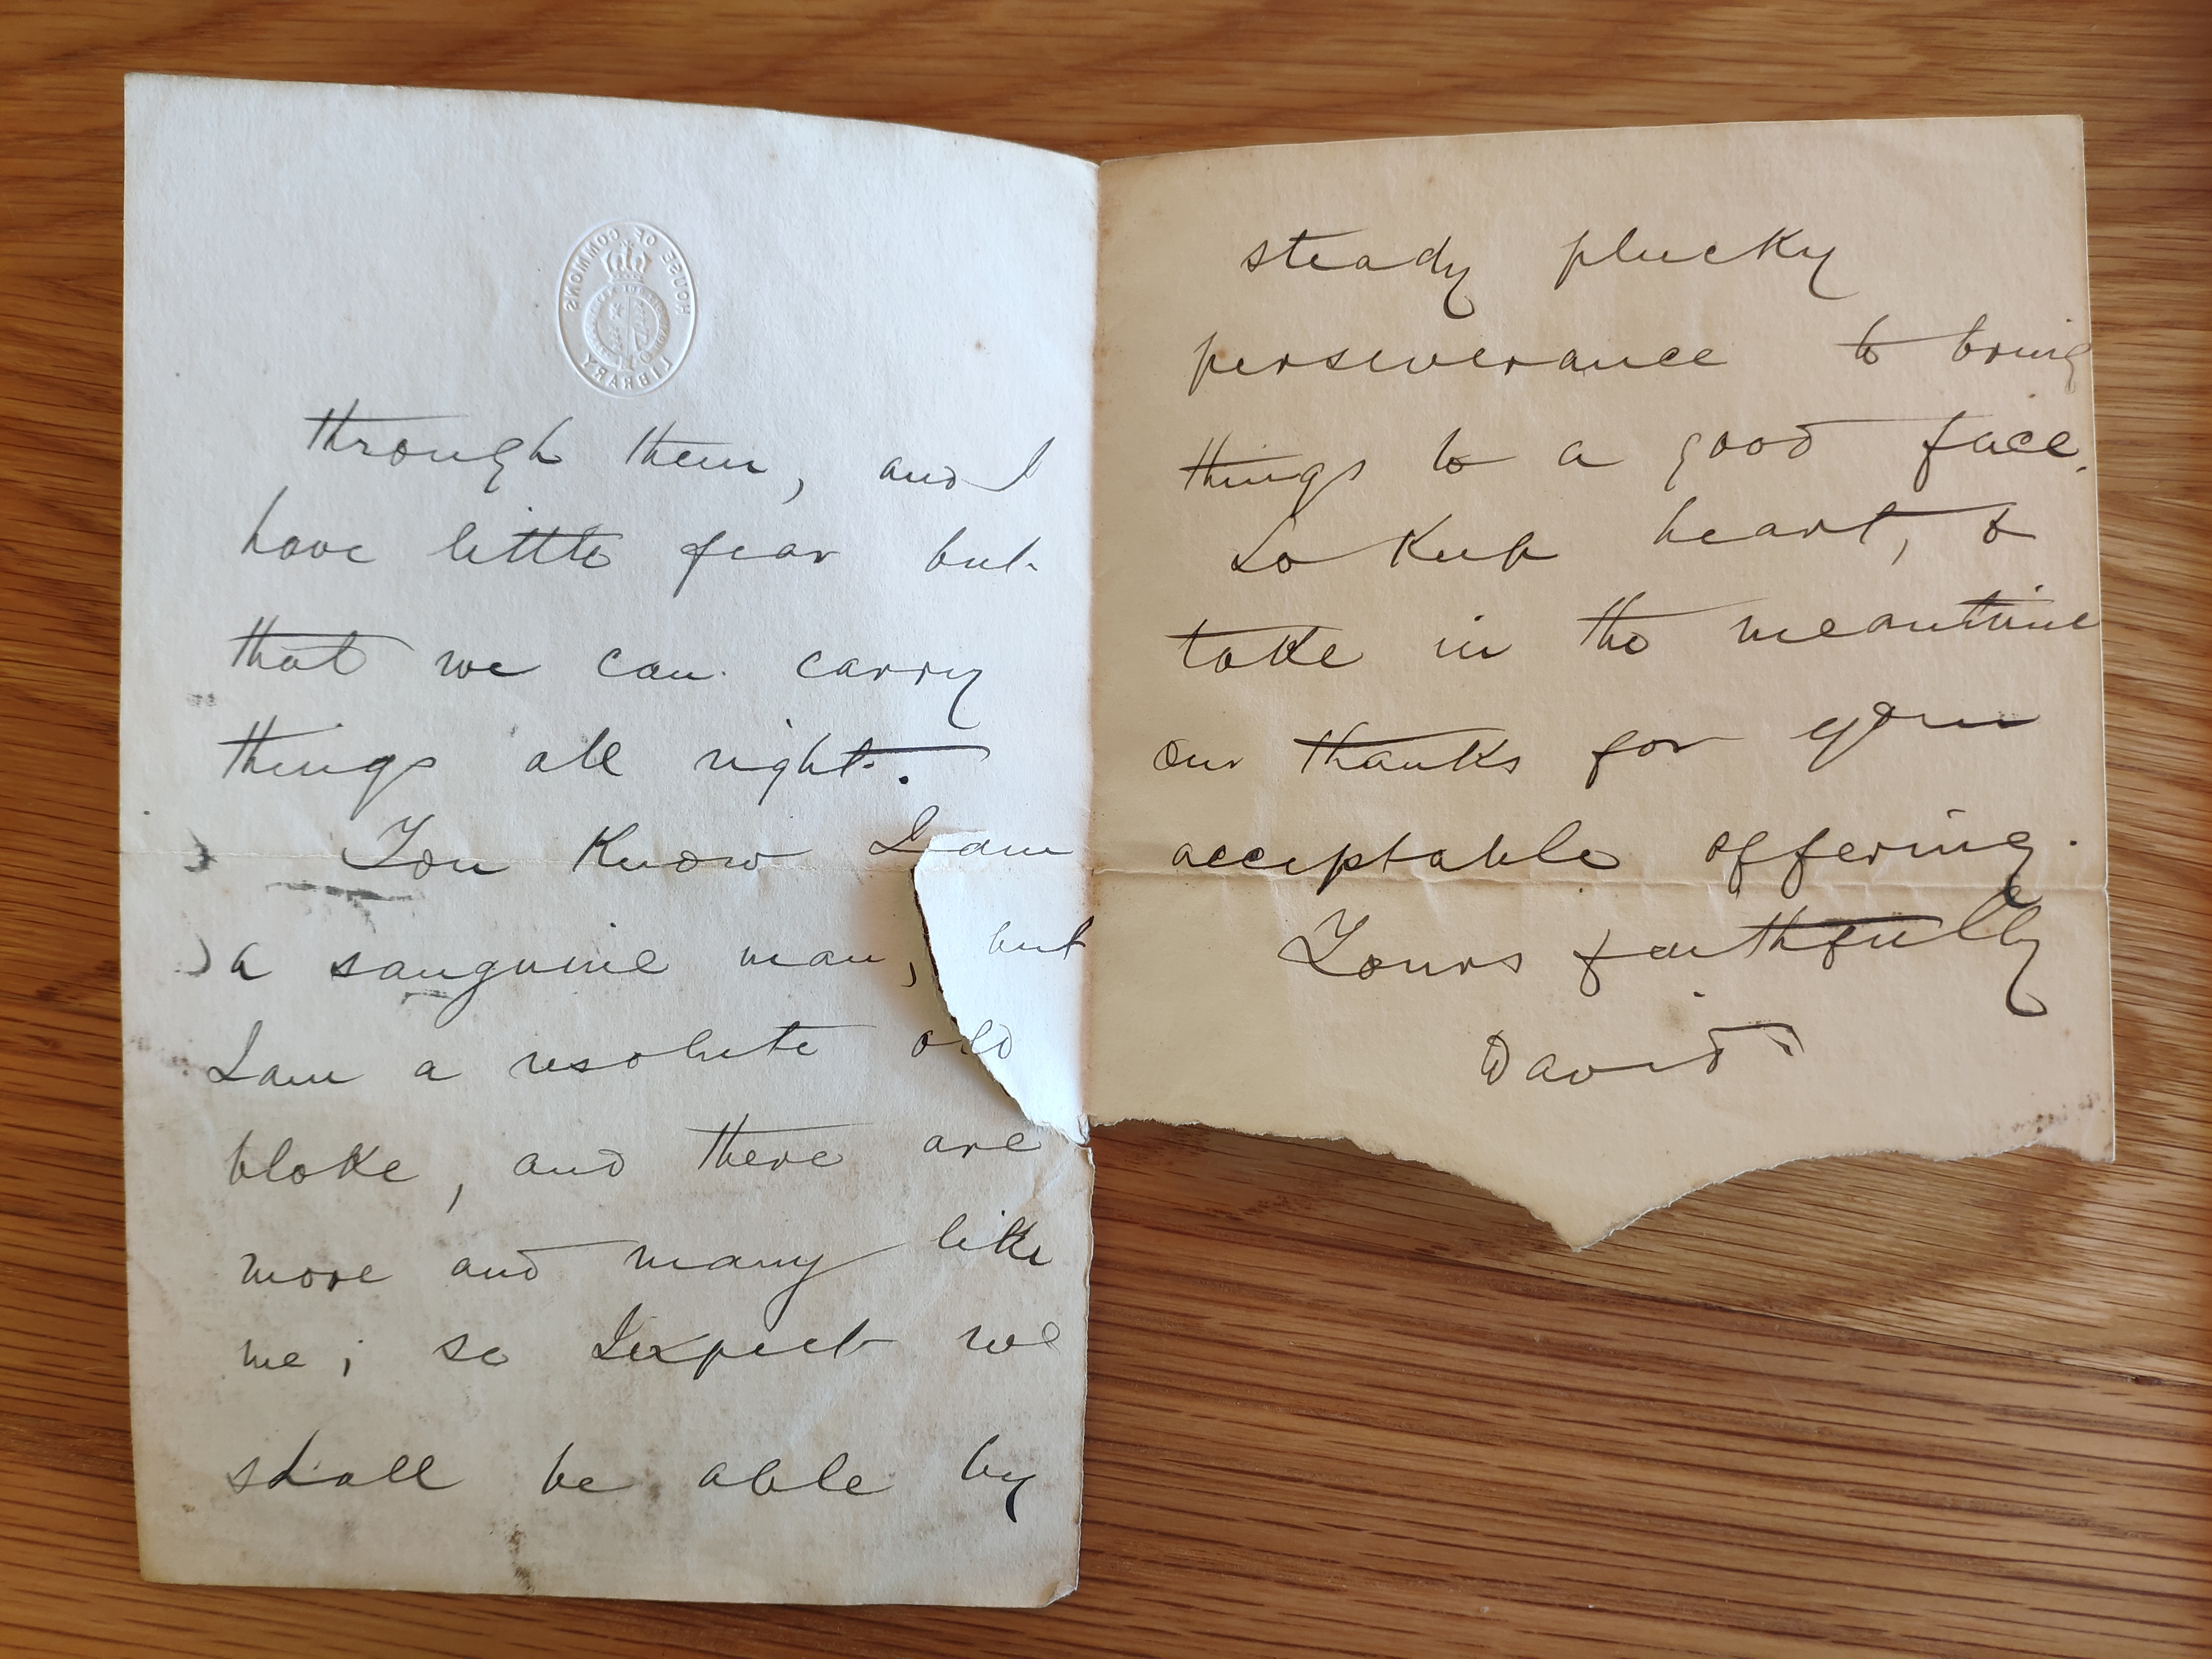 HOUSE OF COMMONS
LIBRARY
through them, and I
have little fear but
that we can carry
things all right.
You know I am
a sanguine man, but
I am a resolute old
bloke, and there are
more and many like
me; so I expect we
shall be able by
steady plucky
perseverance to bring
things to a good face.
So keep heart, &
take in the meantime
our thanks for your
acceptable offering.
Yours faithfully
David